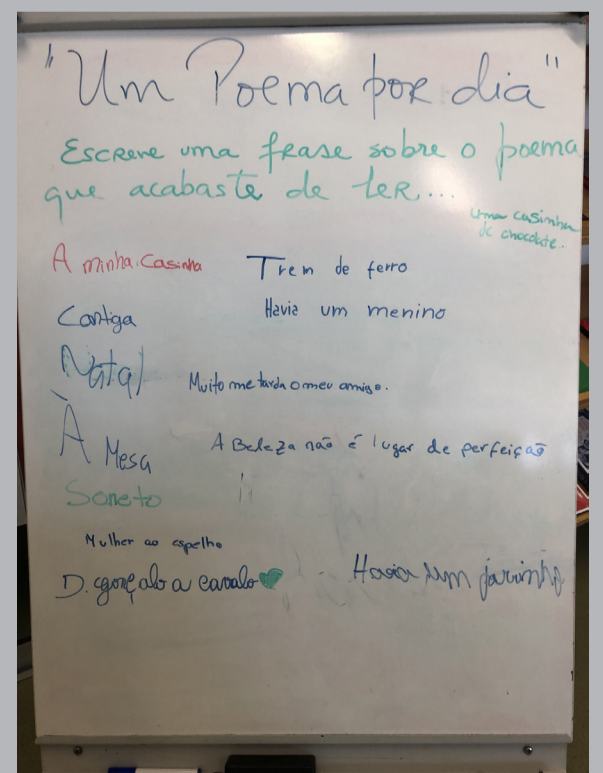 "Um Poema por dia"
Escreve uma frase sobre o poema
que acabaste de ler...
uma casinha
de chocolate.
A minha casinha
Trem de ferro
Cantiga
Havia um menino
Natal
Muito me tarda o meu amigo.
À Mesa
A Beleza não é lugar de perfeição
Soneto
Mulher ao espelho
D. gonçalo a cavalo
Havia um